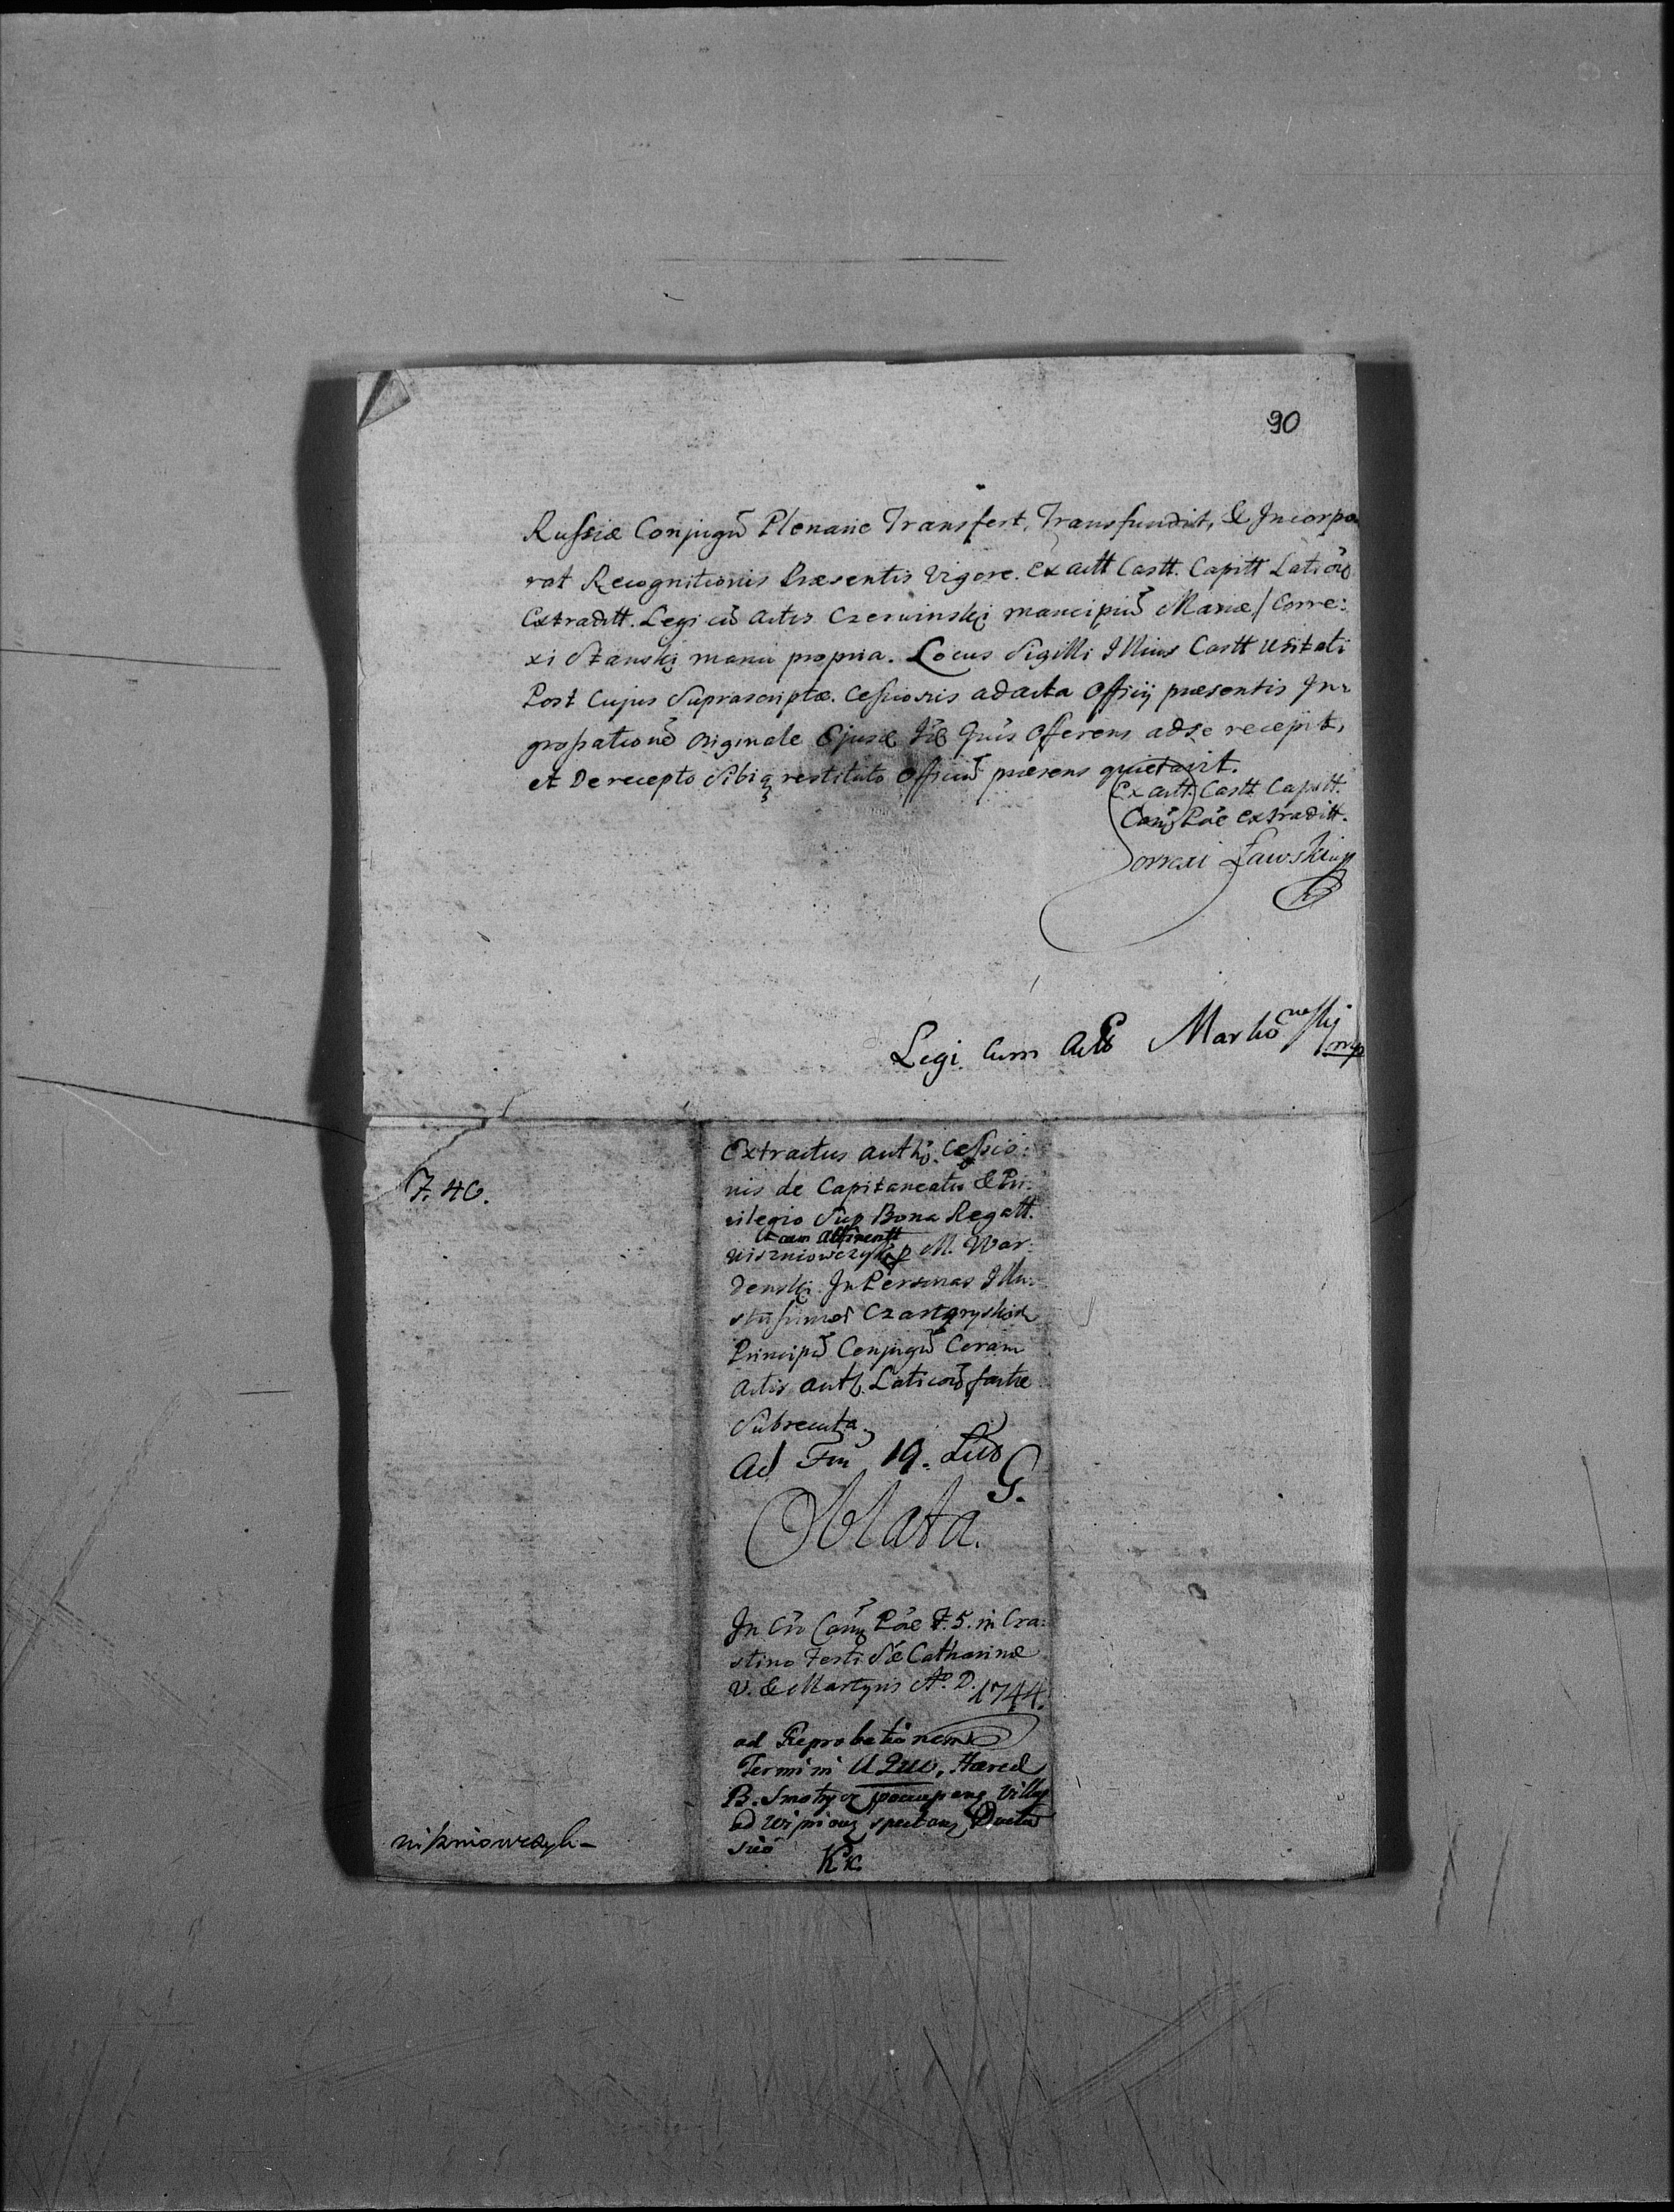 90
Russiæ Conjugū Plenarie Transfert, Transfundit, & Incorpo
rat Recognitionis Præsentis Vigore. Ex actt Castt. Capitt Laticō
Extraditt. Legi cū Actis Czerwinski mancipiū Mariæ / Corre:
xi manu propria. Locus Sigilli Illius Castt Usitati
Post Cujus Suprascriptæ. Cessionis ad acta Officij præsentis In-
grossationē Originale Ejusd Offerens ad se recepit,
et De recepto Sibiq restituto Officiū præsens quietavit.
Ex actt. Castt. Capitt.
Cam Poe extraditt.
Correxi Ławski mp
Legi cum Actis mp
F. 40.
Extractus auth. Cessio:
nis de Capitaneatu & Pri:
vilegio Sup Bona Regalt.
cum Attinentt
Wiszniowczyk p M. War:
denski In Personas Illu:
strissimor Czartoryskich
Principū Conjugū Coram
Actis auth. Laticov factæ
Subsecuta
Ad Fm 19. Lit
G.
Oblata.
In C. Cam Poe F. 5. in Cra:
stino Festi S. Catharinæ
V. & Martyris A. D. 1744.
ad Reprobationem
Termini Haered
B. Smotrycz Villas
ad spectans Ductu
suo
Kk.
Wiszniowczyk-